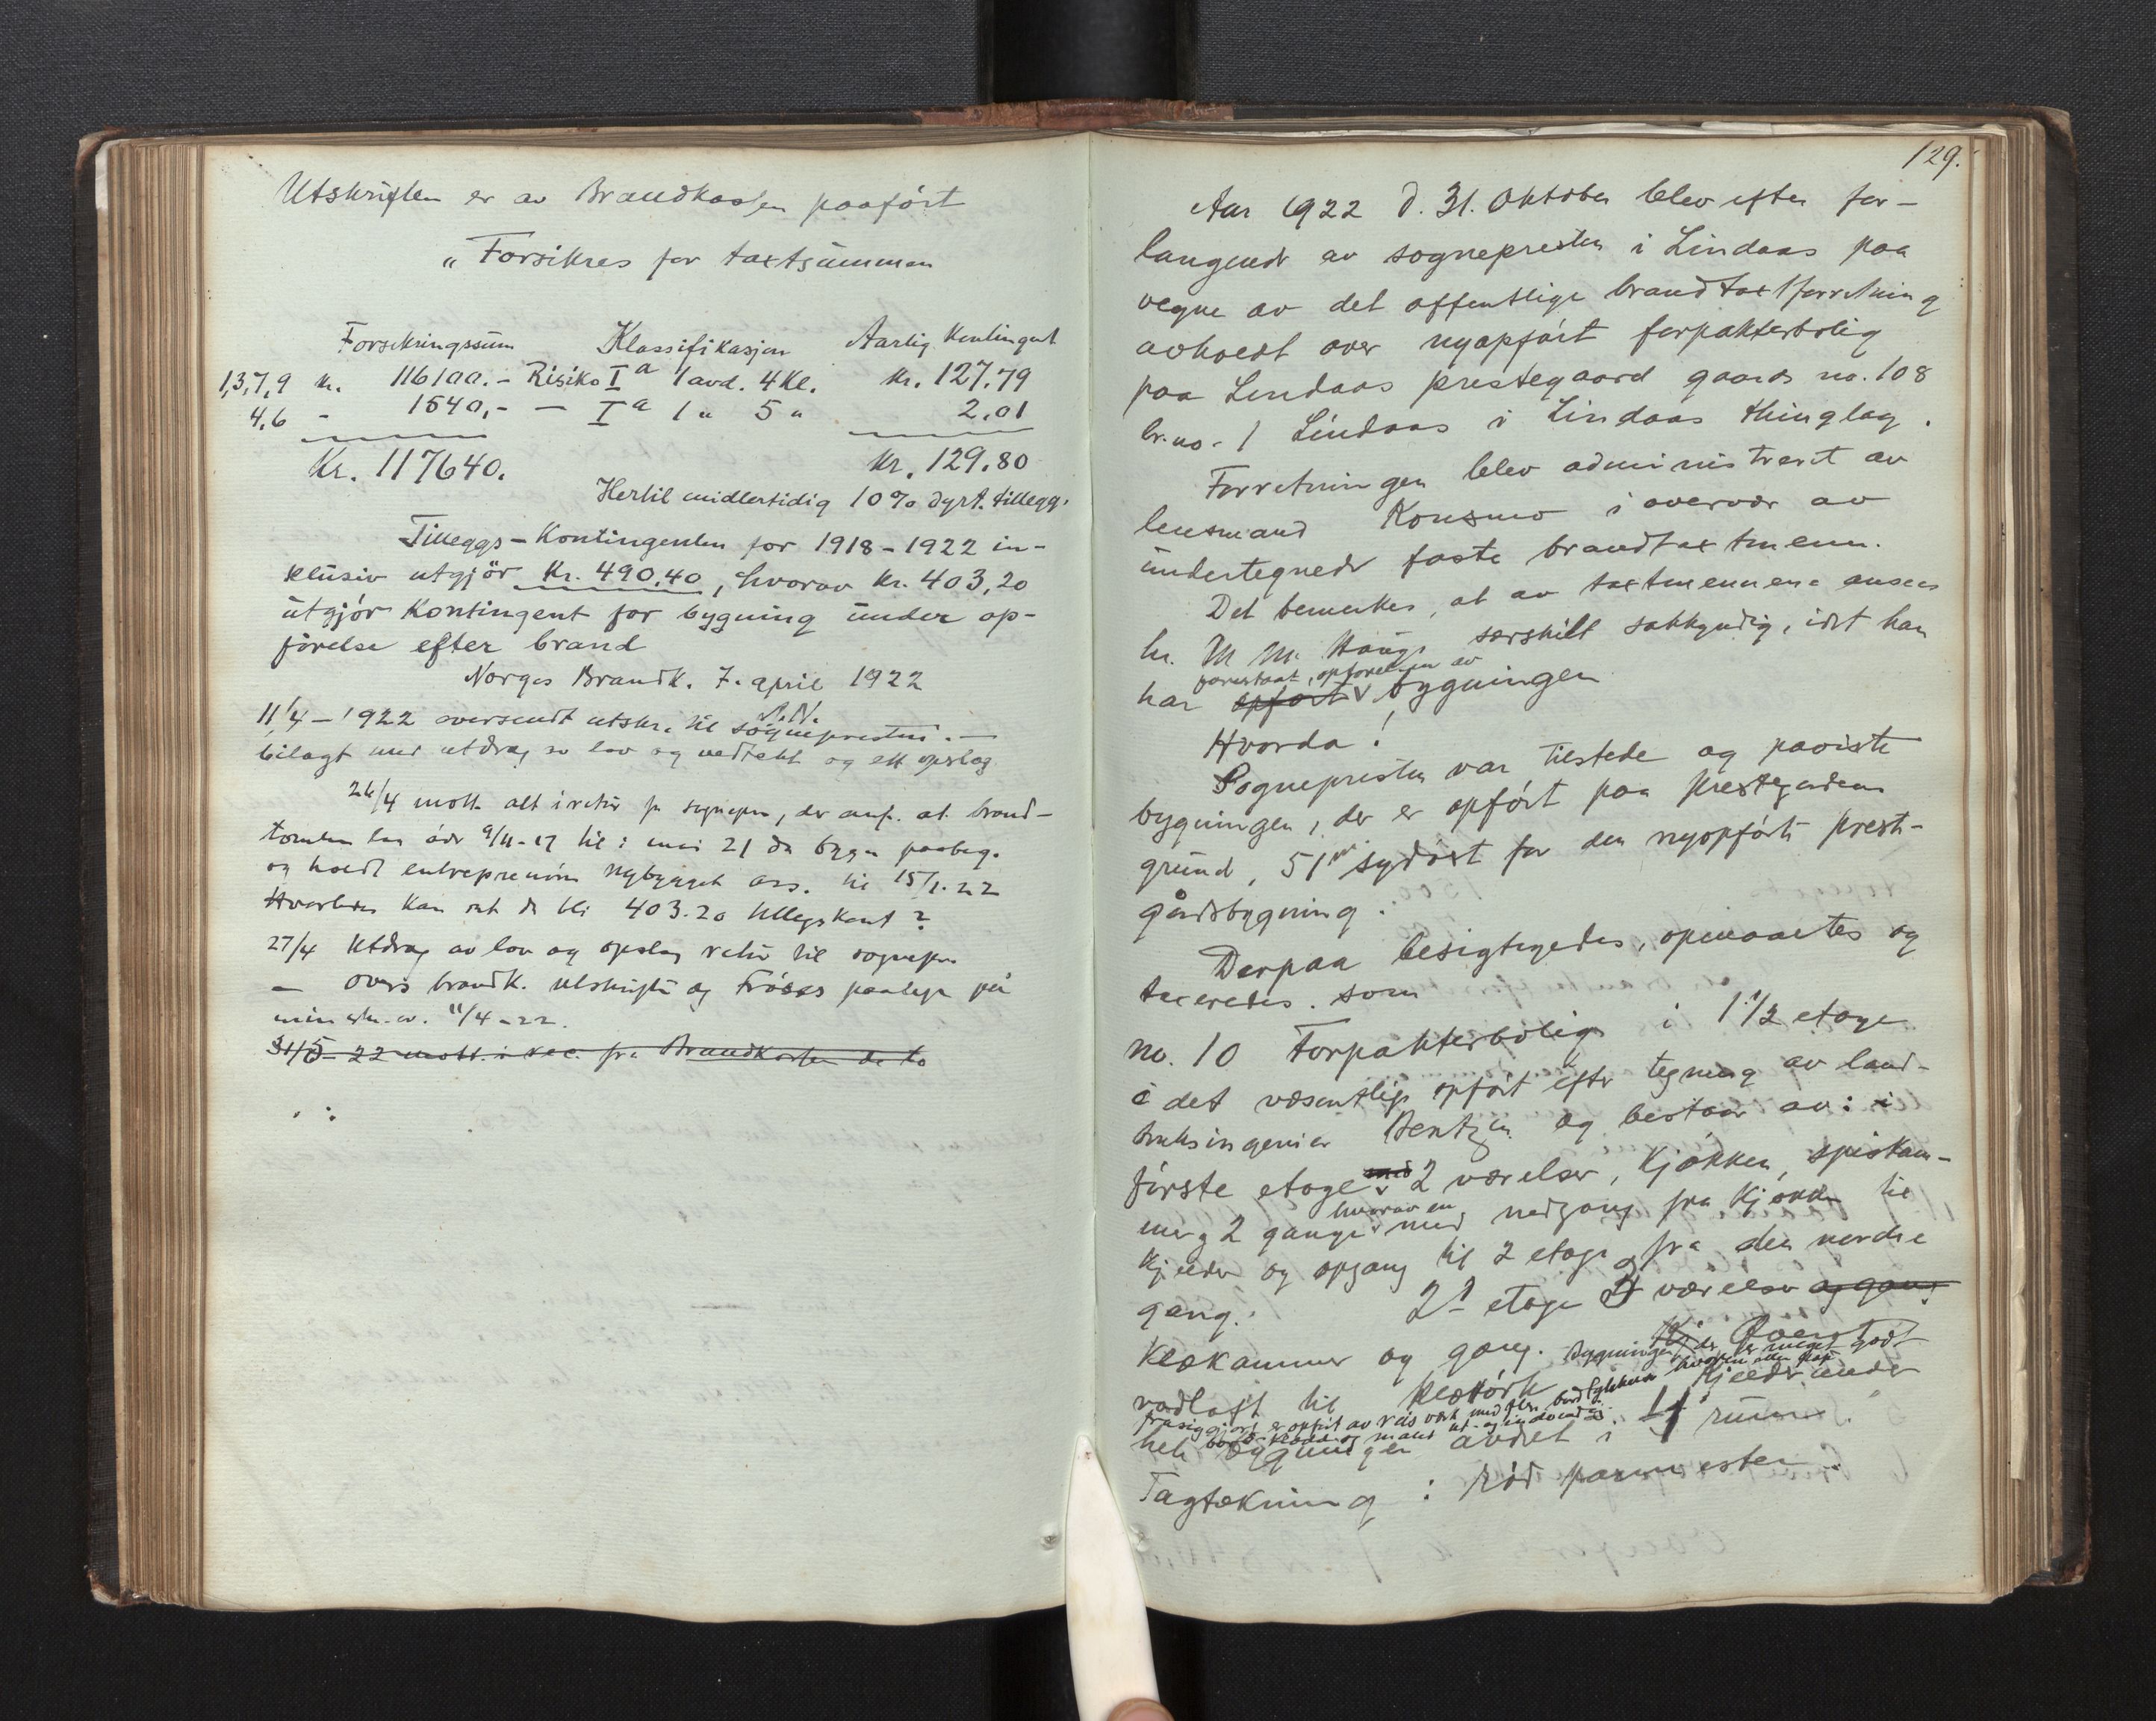 Utskriften er av Brandkassen paaført
„Forsikres for taxtsummen
Forsikringssum Klassifikasjon Aarlig Kontingent
1,3,7,9 kr. 116100.- Risiko Iª 1 avd. 4 Kl. kr. 127.79
4,6 - 1540,- — Iª 1 „ 5 „ 2.01
Kr. 117640. Kr. 129.80
Hertil midlertidig 10% dyrt. tillegg.
Tilleggs-Kontingenten for 1918-1922 in-
klusiv utgjör Kr. 490,40, hvorav kr. 403,20
utgjör Kontingent for bygning under op-
förelse efter brand
Norges Brandk. 7. april 1922
N.N.
11/4-1922 oversendt utskr. til sognepresten.—
bilagt med utdrag av lov og vedtekt og ett opslag
26/4 mott. alt i retur fr sognepr, der anf. at brand-
tomten laa öde 9/11-17 til : mai 21 da bygn paabeg.
og holdt entreprenören nybygget ass. til 15/1.22
Hvorledes kan det da bli 403.20 tillegskont?
27/4 Utdrag av lov og opslag retur til sognepr
— overs brandk. utskriften og paategn på
min skr. av. 11/4-22.
31/5-22 mott. i rec. fra Brandkassen de to
129.
Aar 1922 d. 31. Oktober blev efter for-
langende av sognepresten i Lindaas paa
vegne av det offentlige brandtaxtforretning
avholdt over nyopført forpakterbolig
paa Lindaas prestegaard gaards no. 108
br.no. 1 Lindaas i Lindaas thinglag.
Forretningen blev administreret av
lensmand Konsmo i overvær av
undertegnede faste brandtaxtmenn.
Det bemerkes, at av taxtmennene ansees
hr. M M. Hauge særskilt sakkyndig, idet han
forestaat, opførelsen av
har opført v bygningen
Hvorda!
Sognepresten var tilstede og paaviste
bygningen, der er opført paa prestegardens
grund, 51 m. sydöst for den nyopførte prest-
gårdsbygning.
Derpaa besigtigedes, opmaaltes og
taxeredes som
no. 10 Forpakterbolig i 1 1/2 etage
i det væsentlige opført efter tegning av land-
bruksingeniør Bentzen og bestaar av: i
første etage med 2 værelser, kjøkken, spiskam-
hvorav en
mer, 2 gange v med nedgang fra kjøkken til
kjelder og opgang til 2 etage fra den nordre
gang. 2den etage 3 værelser og gang
Klækammer og gang. Øverst
Bygningen, der er meget godt
vadloft til klætørk Kjelder under
frasiggjort er opført av reisverk med
hele bygningen avdelt i 4 rum.
Tagtækning : rød pannesten.